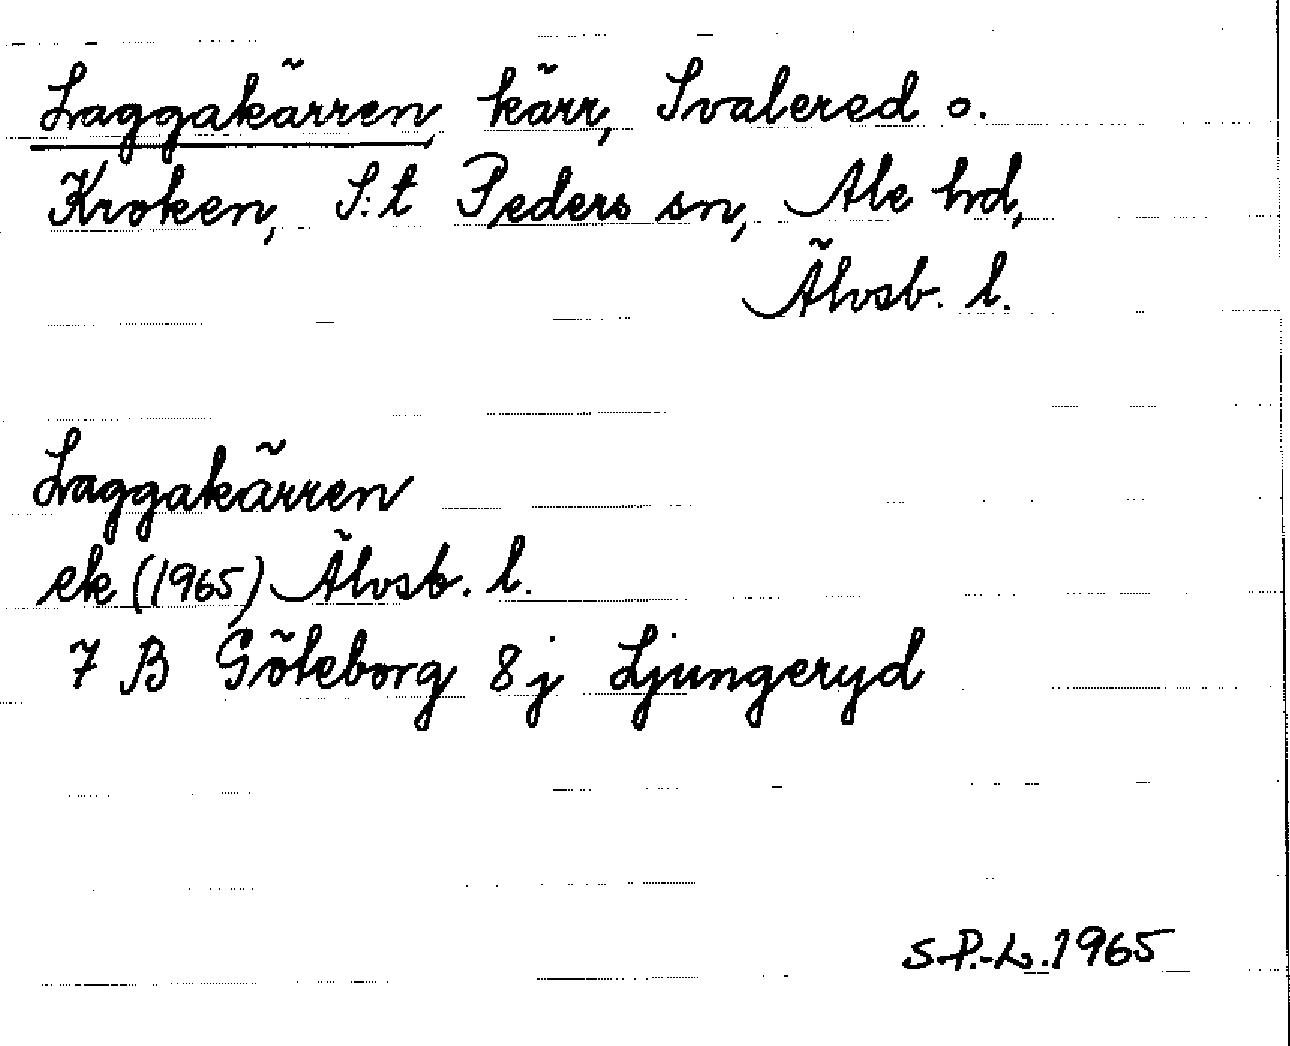 Laggakärren, kärr, Svalered o.
Kroken, S:t Peders sn, Ale hd,
Älvsb. l.
Laggakärren
ek (1965) Älvsb. l.
7 B Göteborg 8j Ljungeryd
S.P.-L. 1965